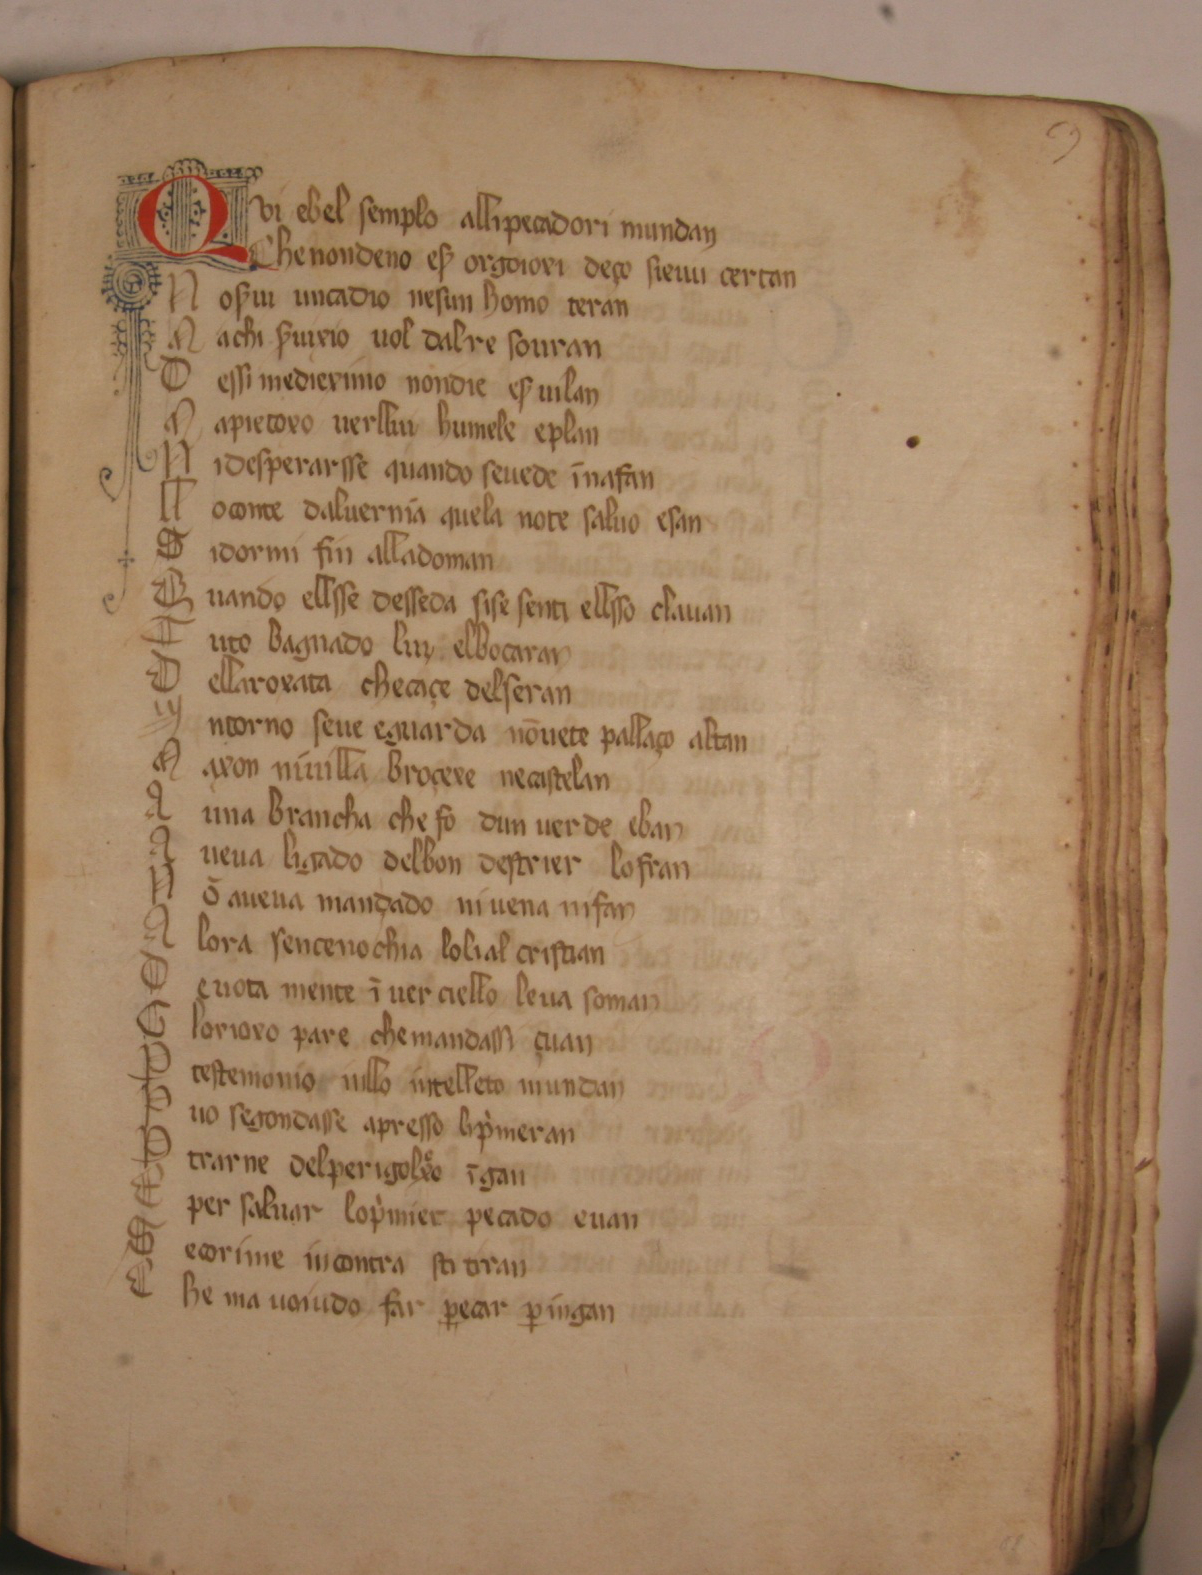 59
Qvi ebel semplo allipecadori mundan
Chenondeno es̄ orgoiori deço sieuu certan
N os̄uu uncadio nesun homo teran
M achi s̄uirio uol dalre souran
D essi medieximo nondie es̄ uilan
M apietoxo uerlluu humele eplan
N idesperarsse quando seuede īnafan
ll oconte daluernia quela note saluo esan
S idormi fin alladoman
Q uando ellsse desseda sise senti ellsso clauan
T uto bagnado luy elbocaran
D ellaroxata checaçe delseran
I ntorno seue eguarda nōuete pallaço altan
M axon niuilla broçexe necastelan
A una brancha che fo dun uerde eban
A ueua ligado delbon destrier lofran
N ō aueua mançado niuena nifan
A lora sencenochia lolial cristian
D euota mente ī uer ciello leua soman
G lorioxo pare chemandassi çuan
P testemonio nillo intelleto mundan
P uo segondasse apresso lip̍meran
P trarne delperigolxo īgan
E per saluar lop̍mier pecado euan
S ecorime incontra sti tiran
C he ma uoiudo far ꝑecar ꝑ ingan